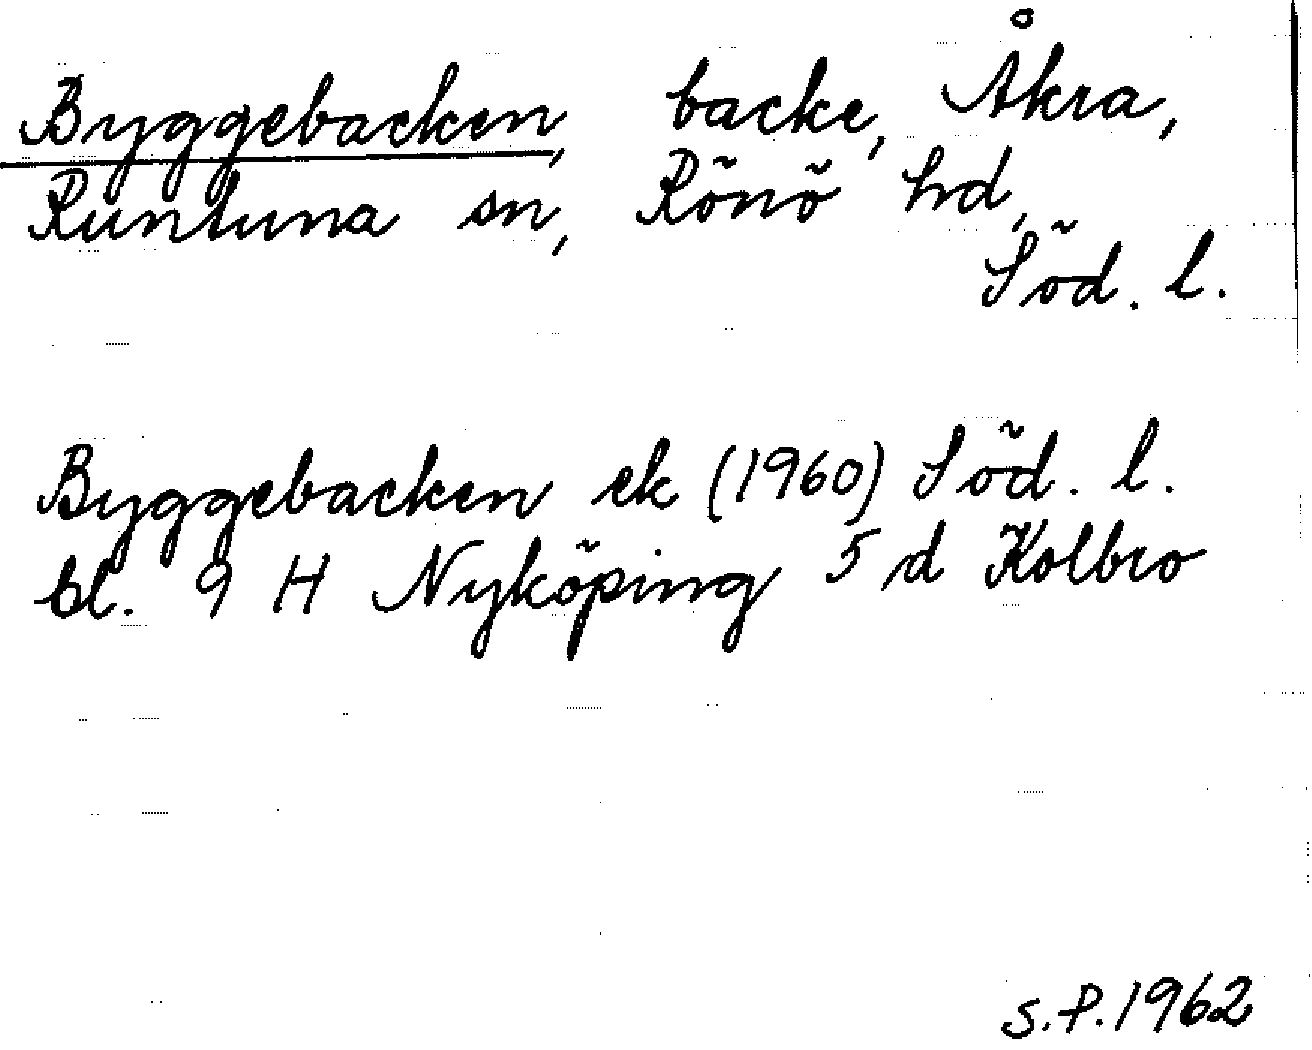 Byggebacken, backe, Åkra,
Runtuna sn, Rönö hd,
Söd. l.
Byggebacken ek (1960) Söd. l.
bl. 9 H Nyköping 5 d Kolbro
S.P. 1962